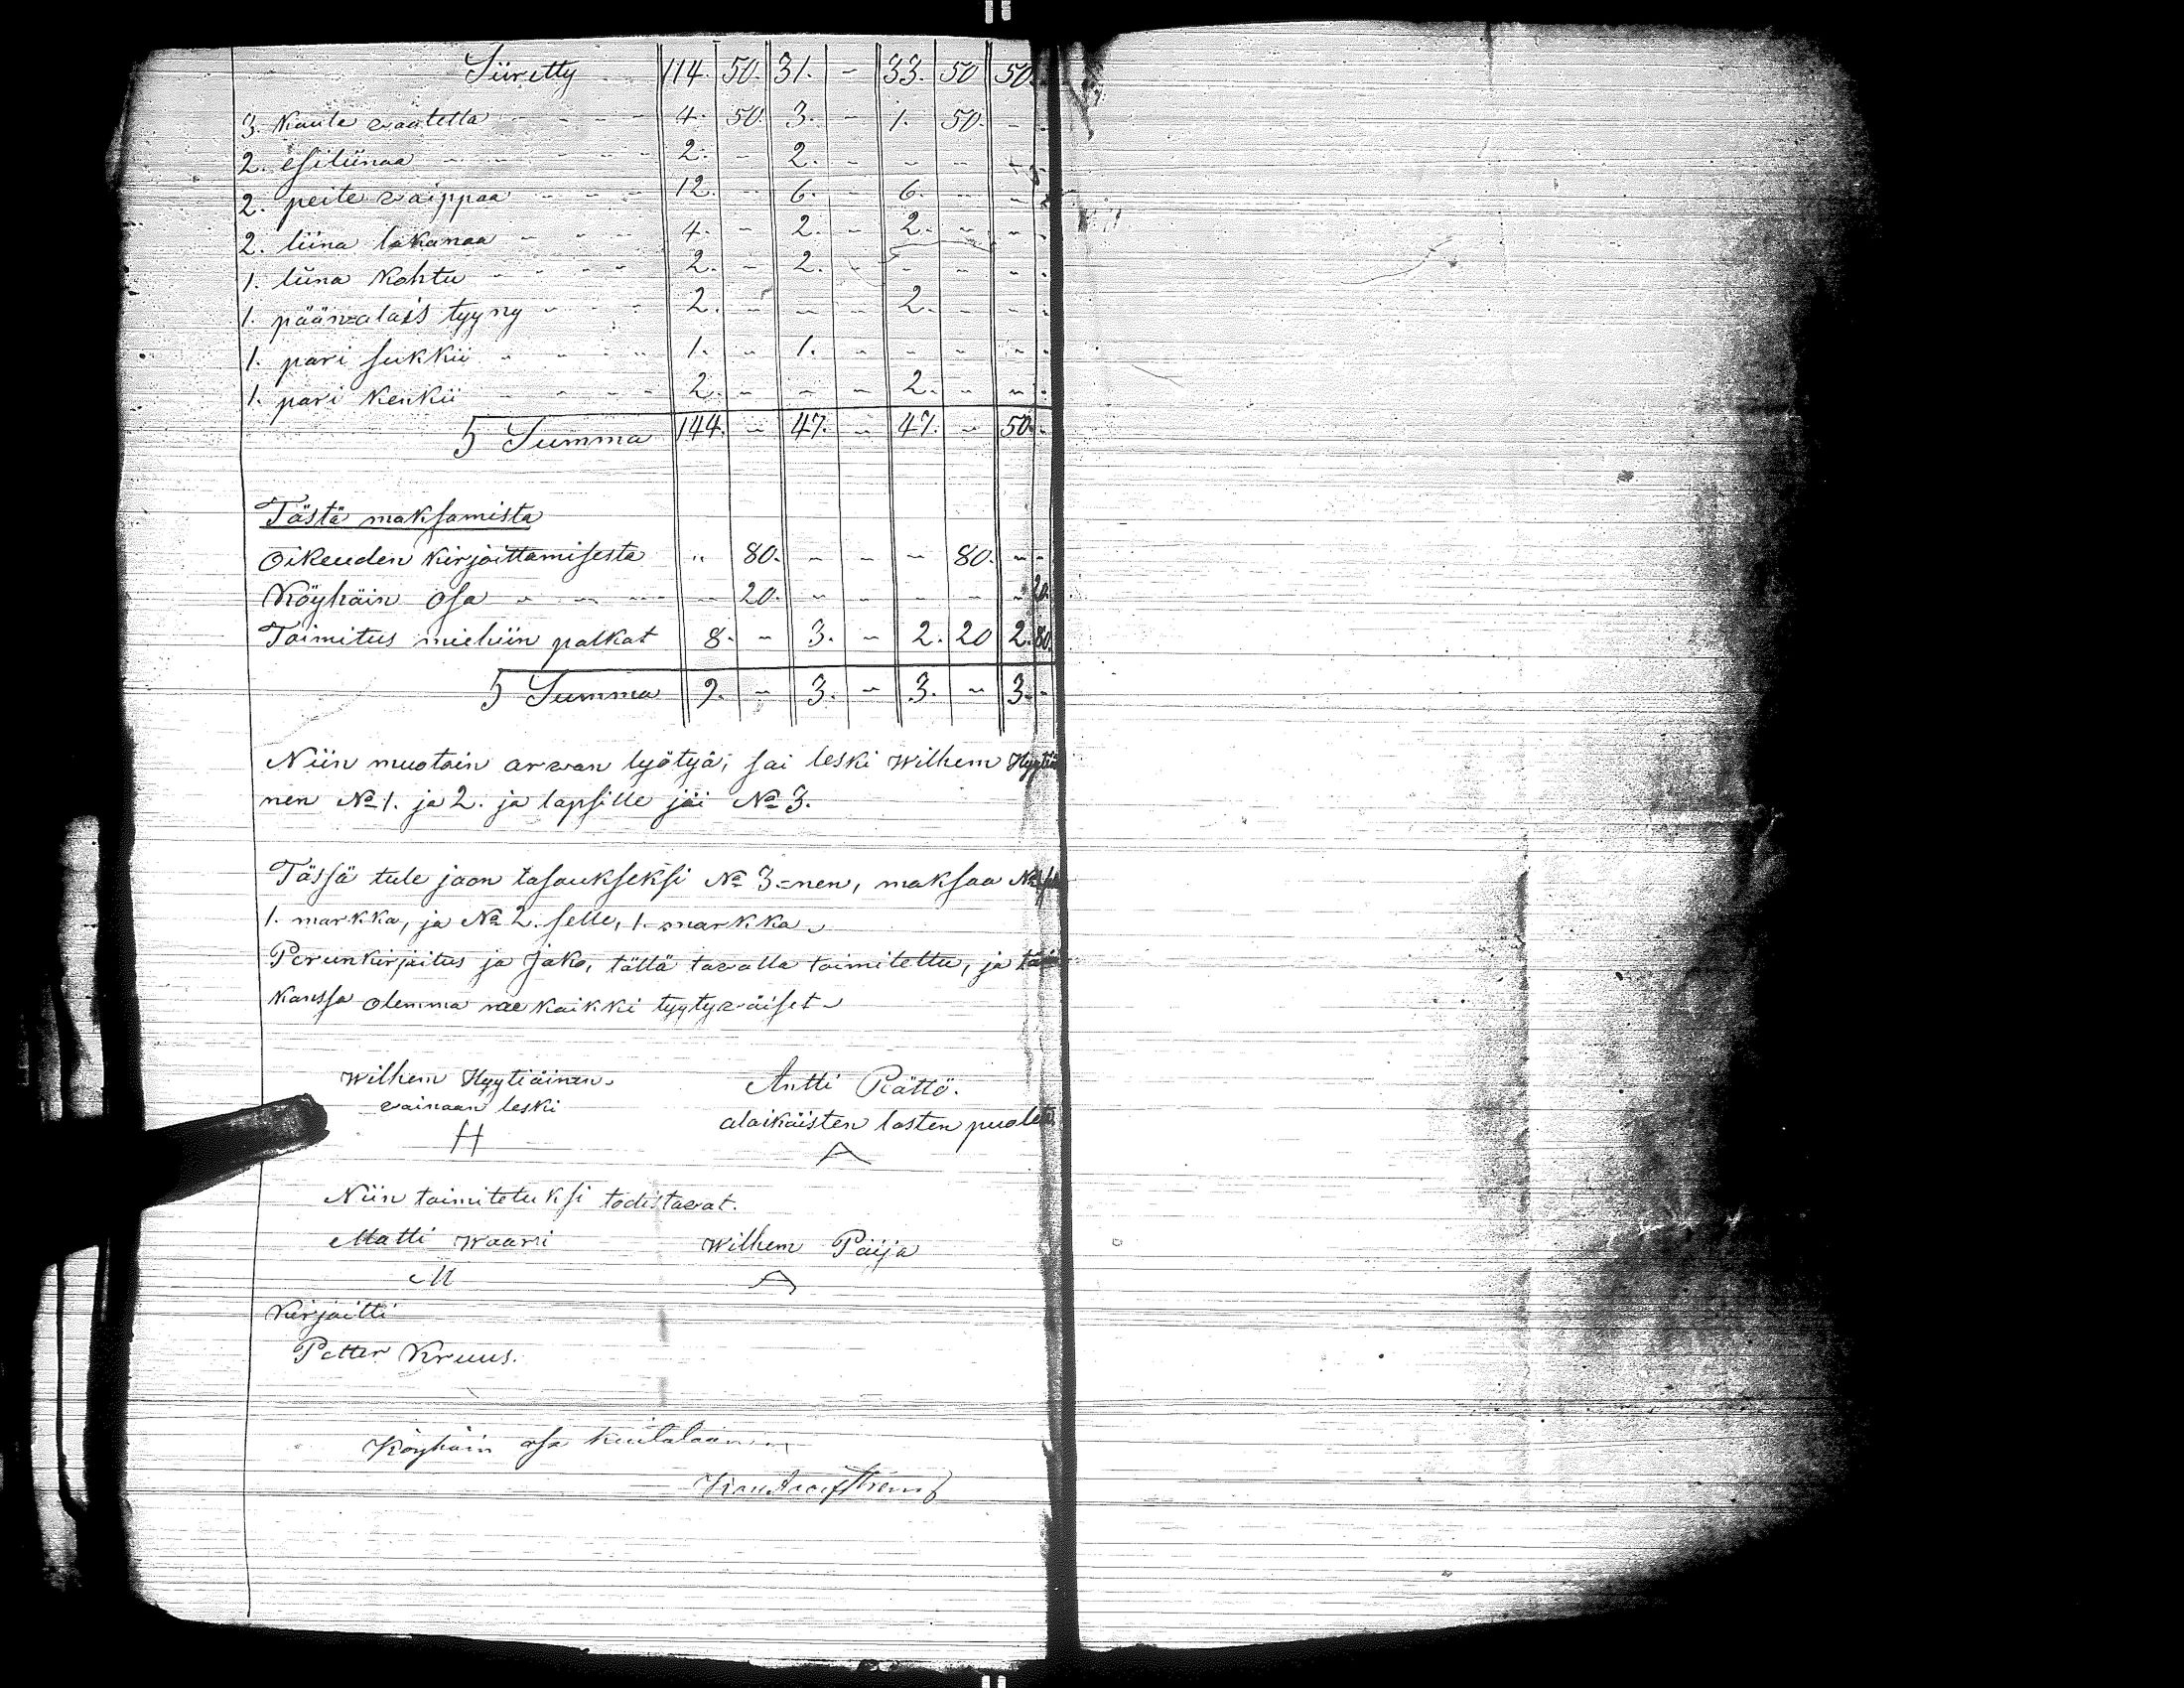 Siiretty 114. 50. 31. - 33. 50 50.
3. Kaula vaatetta - - - - 4. 50. 3. - 1. 50. - -
2. esiliinaa - - - - - 2. - 2. - - - - -
2. peite vaippaa - - - 12. - 6. - 6. - - -
2. liina lakanaa - - - - 4. - 2. - 2. - - -
1. liina Kohtu - - - - - 2. - 2. - - - - -
1. päänalais tyyny - - - 2. - - - 2. - - -
1. pari sukkii - - - - 1. - 1. - - - - -
1. pari Kenkii - - - - - 2. - - - 2. - - -
Summa 144. - 47. - 47. - 50. -
Tästä maksamista
Oikeuden Kirjoittamisesta " 80. - - - 80. - -
Köyhäin Osa - - - - 20. - - - - - 20.
Toimitus miehiin palkat 8. - 3. - 2. 20 2. 80.
Summa 9. - 3. - 3. - 3. -
Niin muotoin arvan lyötyä, sai leski Wilhem Hyytiäi
nen No 1. ja 2. ja lapsille jäi No 3.
Tässä tule jaon tasaukseksi No 3=nen, maksaa No
1. markka, ja No 2. selle, 1. markka
Perunkirjoitus ja Jako, tällä tavalla toimitettu, ja
Kanssa olemma me kaikki tyytyväiset
Wilhem Hyytiäinen. Antti Rättö.
vainaan leski alaikäisten lasten puolen
H A
Niin toimitetuksi todistavat.
Matti Waari Wilhem Päijä
M A
Kirjoitti
Petter Kruus.
Köyhäin osa kuitataan